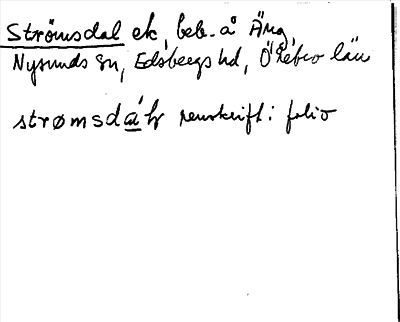 Strömsdal ek, beb. å Äng,
Nysunds sn, Edsbergs hd, Örebro län
strømsdáɫ renskrift i folio